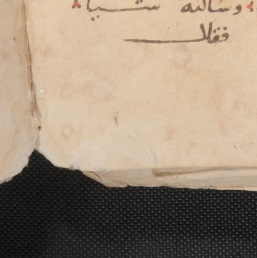 وسالته شيا
فقال